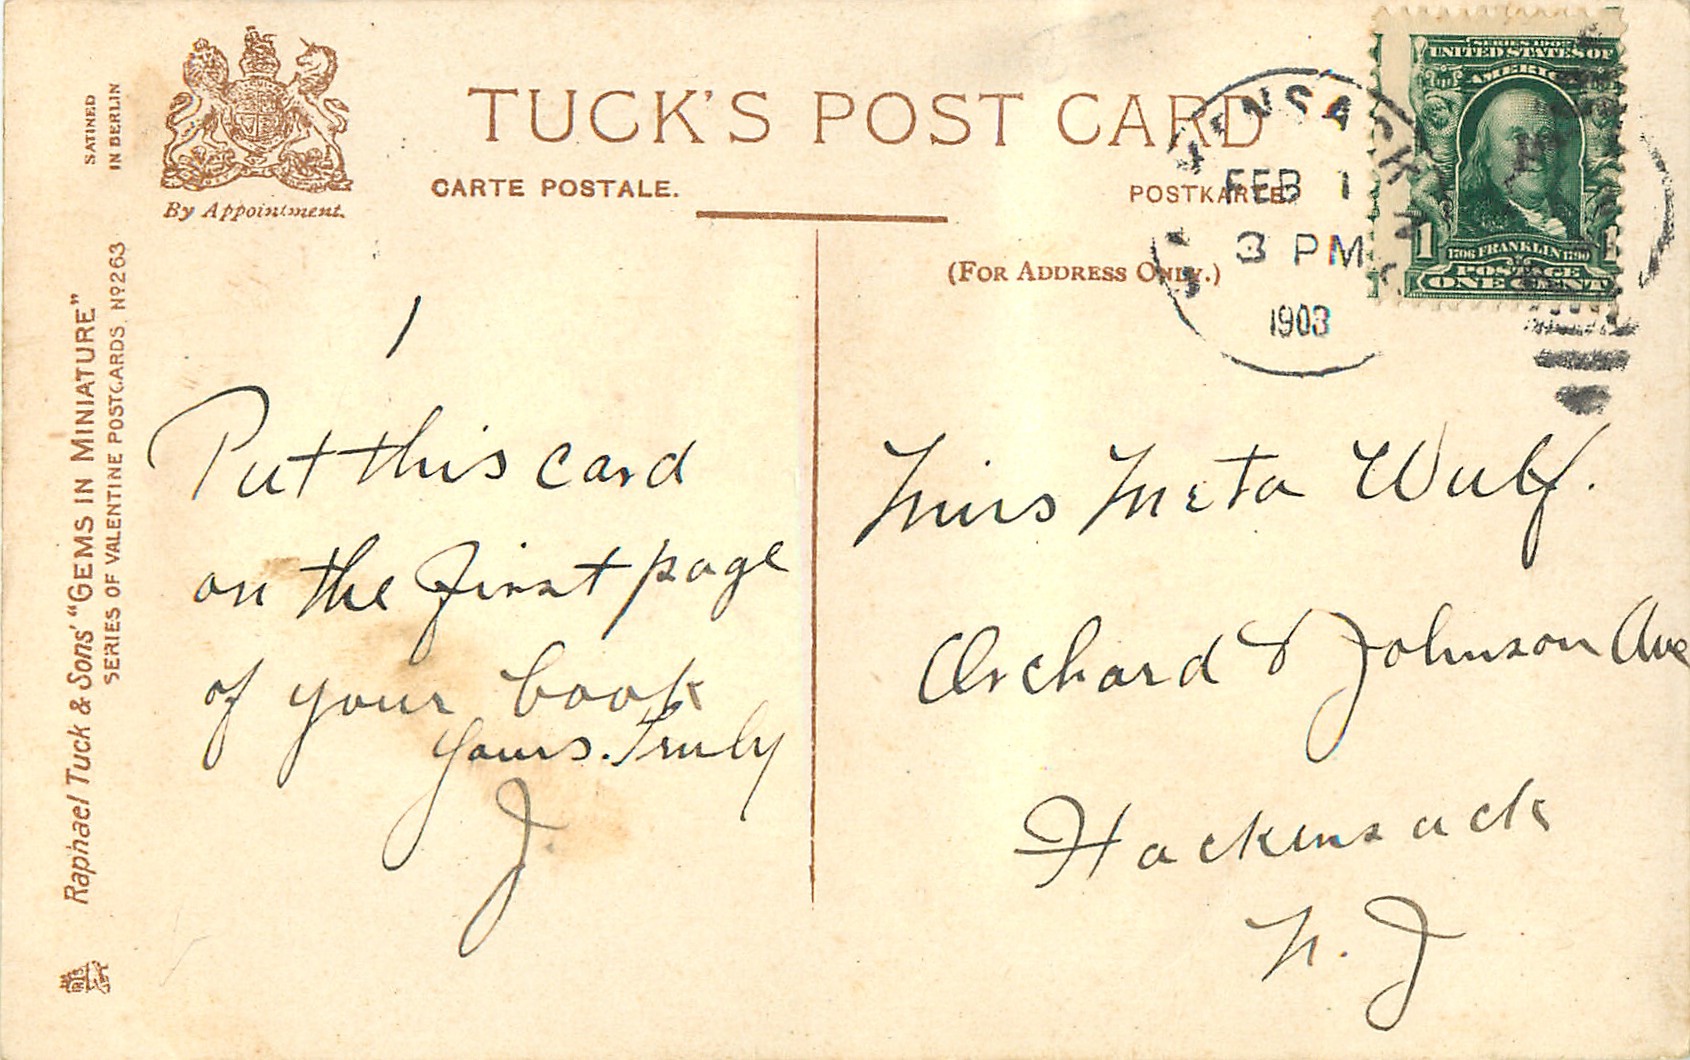 SATINED
IN BERLIN
By Appointment.
TUCK'S POST CARD
CARTE POSTALE.
POSTKARTE
(FOR ADDRESS ONLY.)
FEB 1
3 PM
SERIES 1902
UNITED STATES OF
AMERICA
1706 FRANKLIN 1790
1
POSTAGE
ONE CENT
Raphael Tuck & Sons' "GEMS IN MINIATURE"
SERIES OF VALENTINE POSTCARDS, Nº 263
1
Put this card
on the first page
of your book
Yours. Truly
J.
Miss Meta Wulf.
Orchard & Johnson Ave
Hackensack
N. J